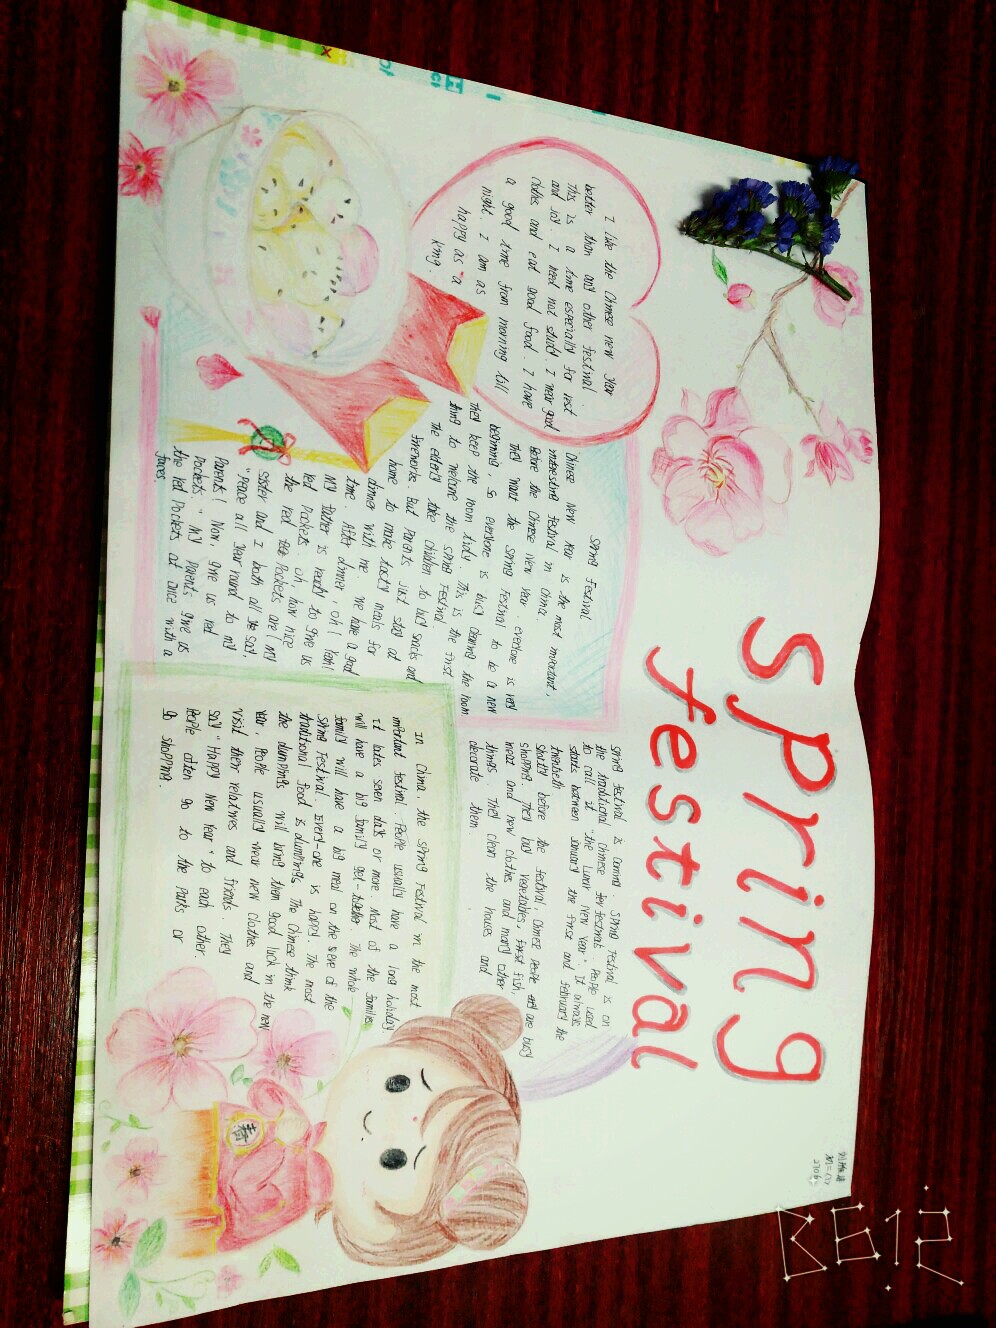 Spring
festival
I like the Chinese new year
better than any other festival.
This is a time especially for rest
and joy. I need not study. I wear good
clothes and eat good food. I have
a good time from morning till
night. I am as
happy as a
king.
Spring Festival
Chinese New Year is the most important,
interesting festival in China.
Before the Chinese New Year everyone is very
They want the spring festival to be a new
beginning, so everyone is busy cleaning the room
they keep the room tidy. This is the first
thing to welcome the spring Festival
The elderly take children to buy snacks and
fireworks. But parents just stay at
home to make tasty meals for
dinner with me. We have a good
time. After dinner, oh! Yeah!
My father is ready to give us
red Pockets. oh, how nice
the red Pockets are! My
sister and I both all the say.
"Peace all year round to my
Parents! Now, give us red
Pockets." My Parents give us
the red Pockets at once with a
faces
Spring Festival is coming. Spring Festival is on
the traditional chinese festivals. People used
to call it "the Lunar New Year". It always
starts between January the first and february the
twentieth
Shortly before the festival, Chinese people they are busy
shopping. They buy vegetables, fresh fish,
meat and new clothes and many other
things. They clean the houses and
decorate them
In China, the spring Festival in the most
important festival. People usually have a long holiday.
it takes seven days or more. Most of the families
will have a big family get-together. The whole
family will have a big meal on the eve of the
Spring Festival. Every-one is happy. The most
traditional food is dumplings. The Chinese think
the dumplings will bring them good luck in the new
year. People usually wear new clothes and
visit their relatives and friends. They
say "Happy New Year" to each other.
People often go to the parks or
go shopping.
春
B612